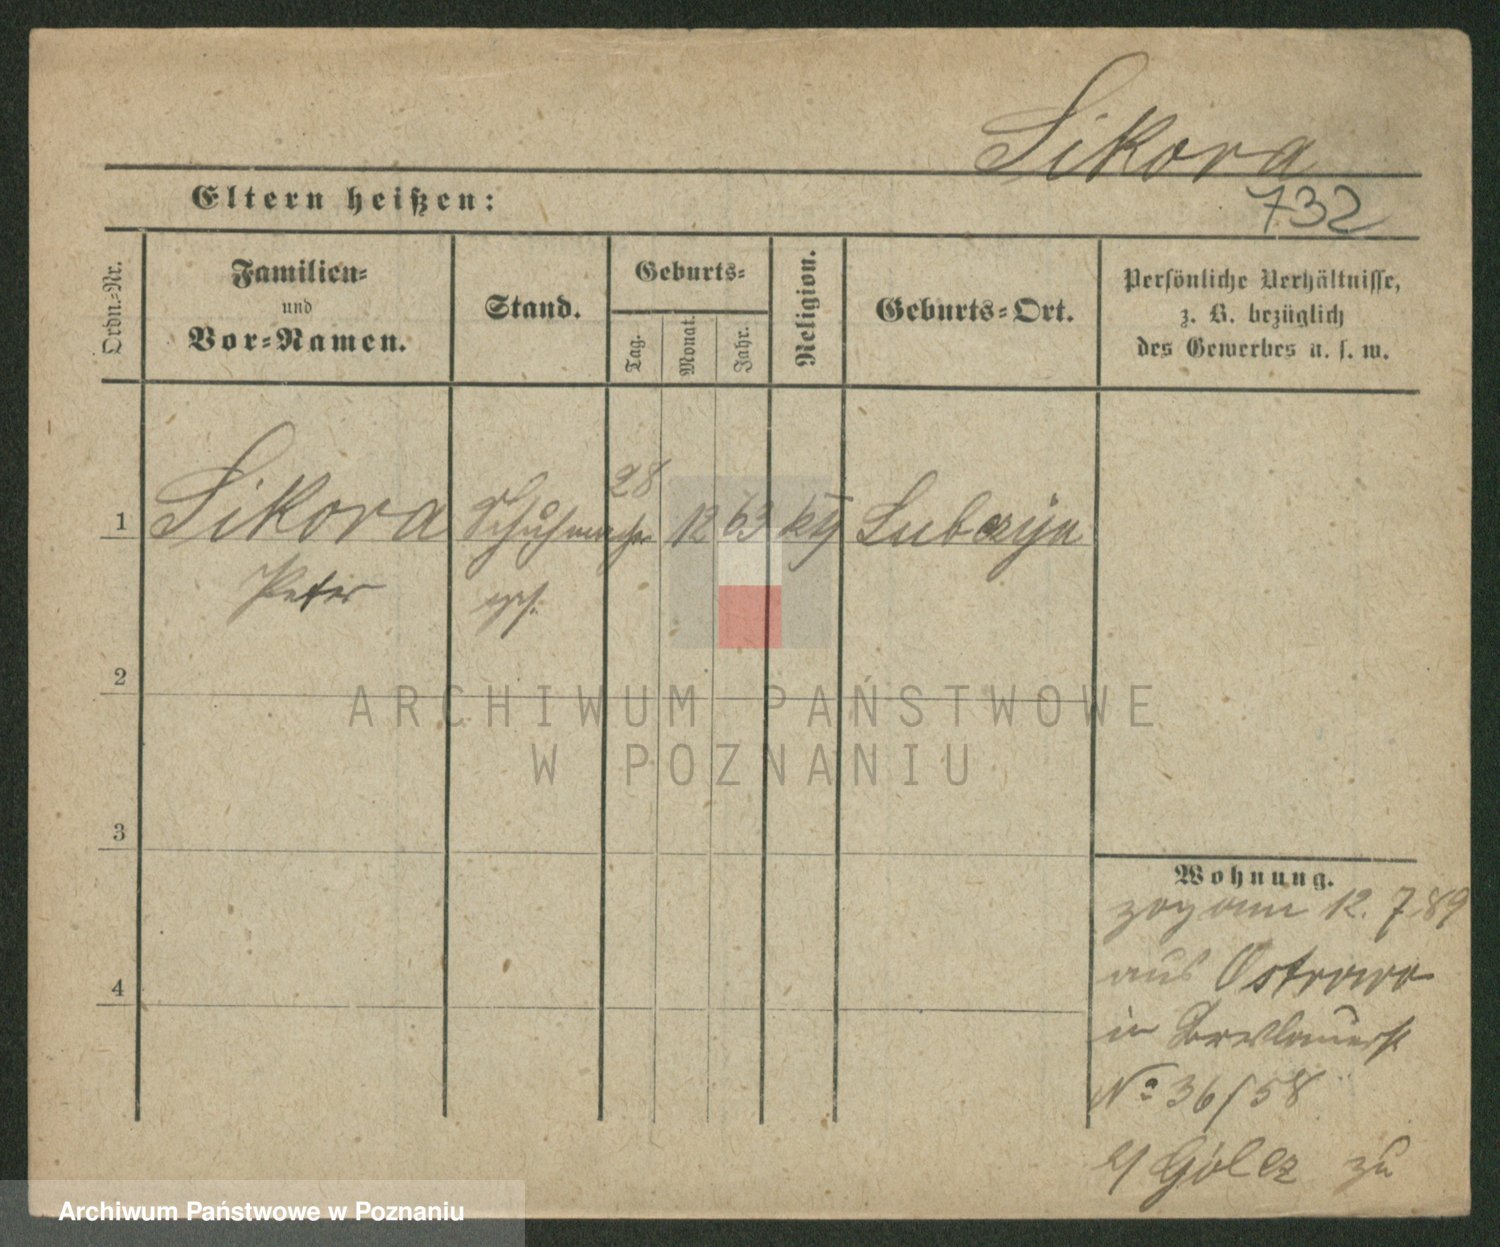 Sikora
Eltern heißen:
732
Ordn.-Nr.
Familien-
und
Vor-Namen.
Stand.
Geburts-
Tag.
Monat.
Jahr.
Religion.
Geburts-Ort.
Persönliche Verhältnisse,
z. B. bezüglich
des Gewerbes u. s. w.
1
Sikora
Schuhmacher
28
12
63
kth
Peter
2
ARCHIWUM PAŃSTWOWE
W POZNANIU
3
Wohnung.
zog am 12. 7 89
aus Ostrowo
4
in Breslauerst
No 36/58
zu
Archiwum Państwowe w Poznaniu